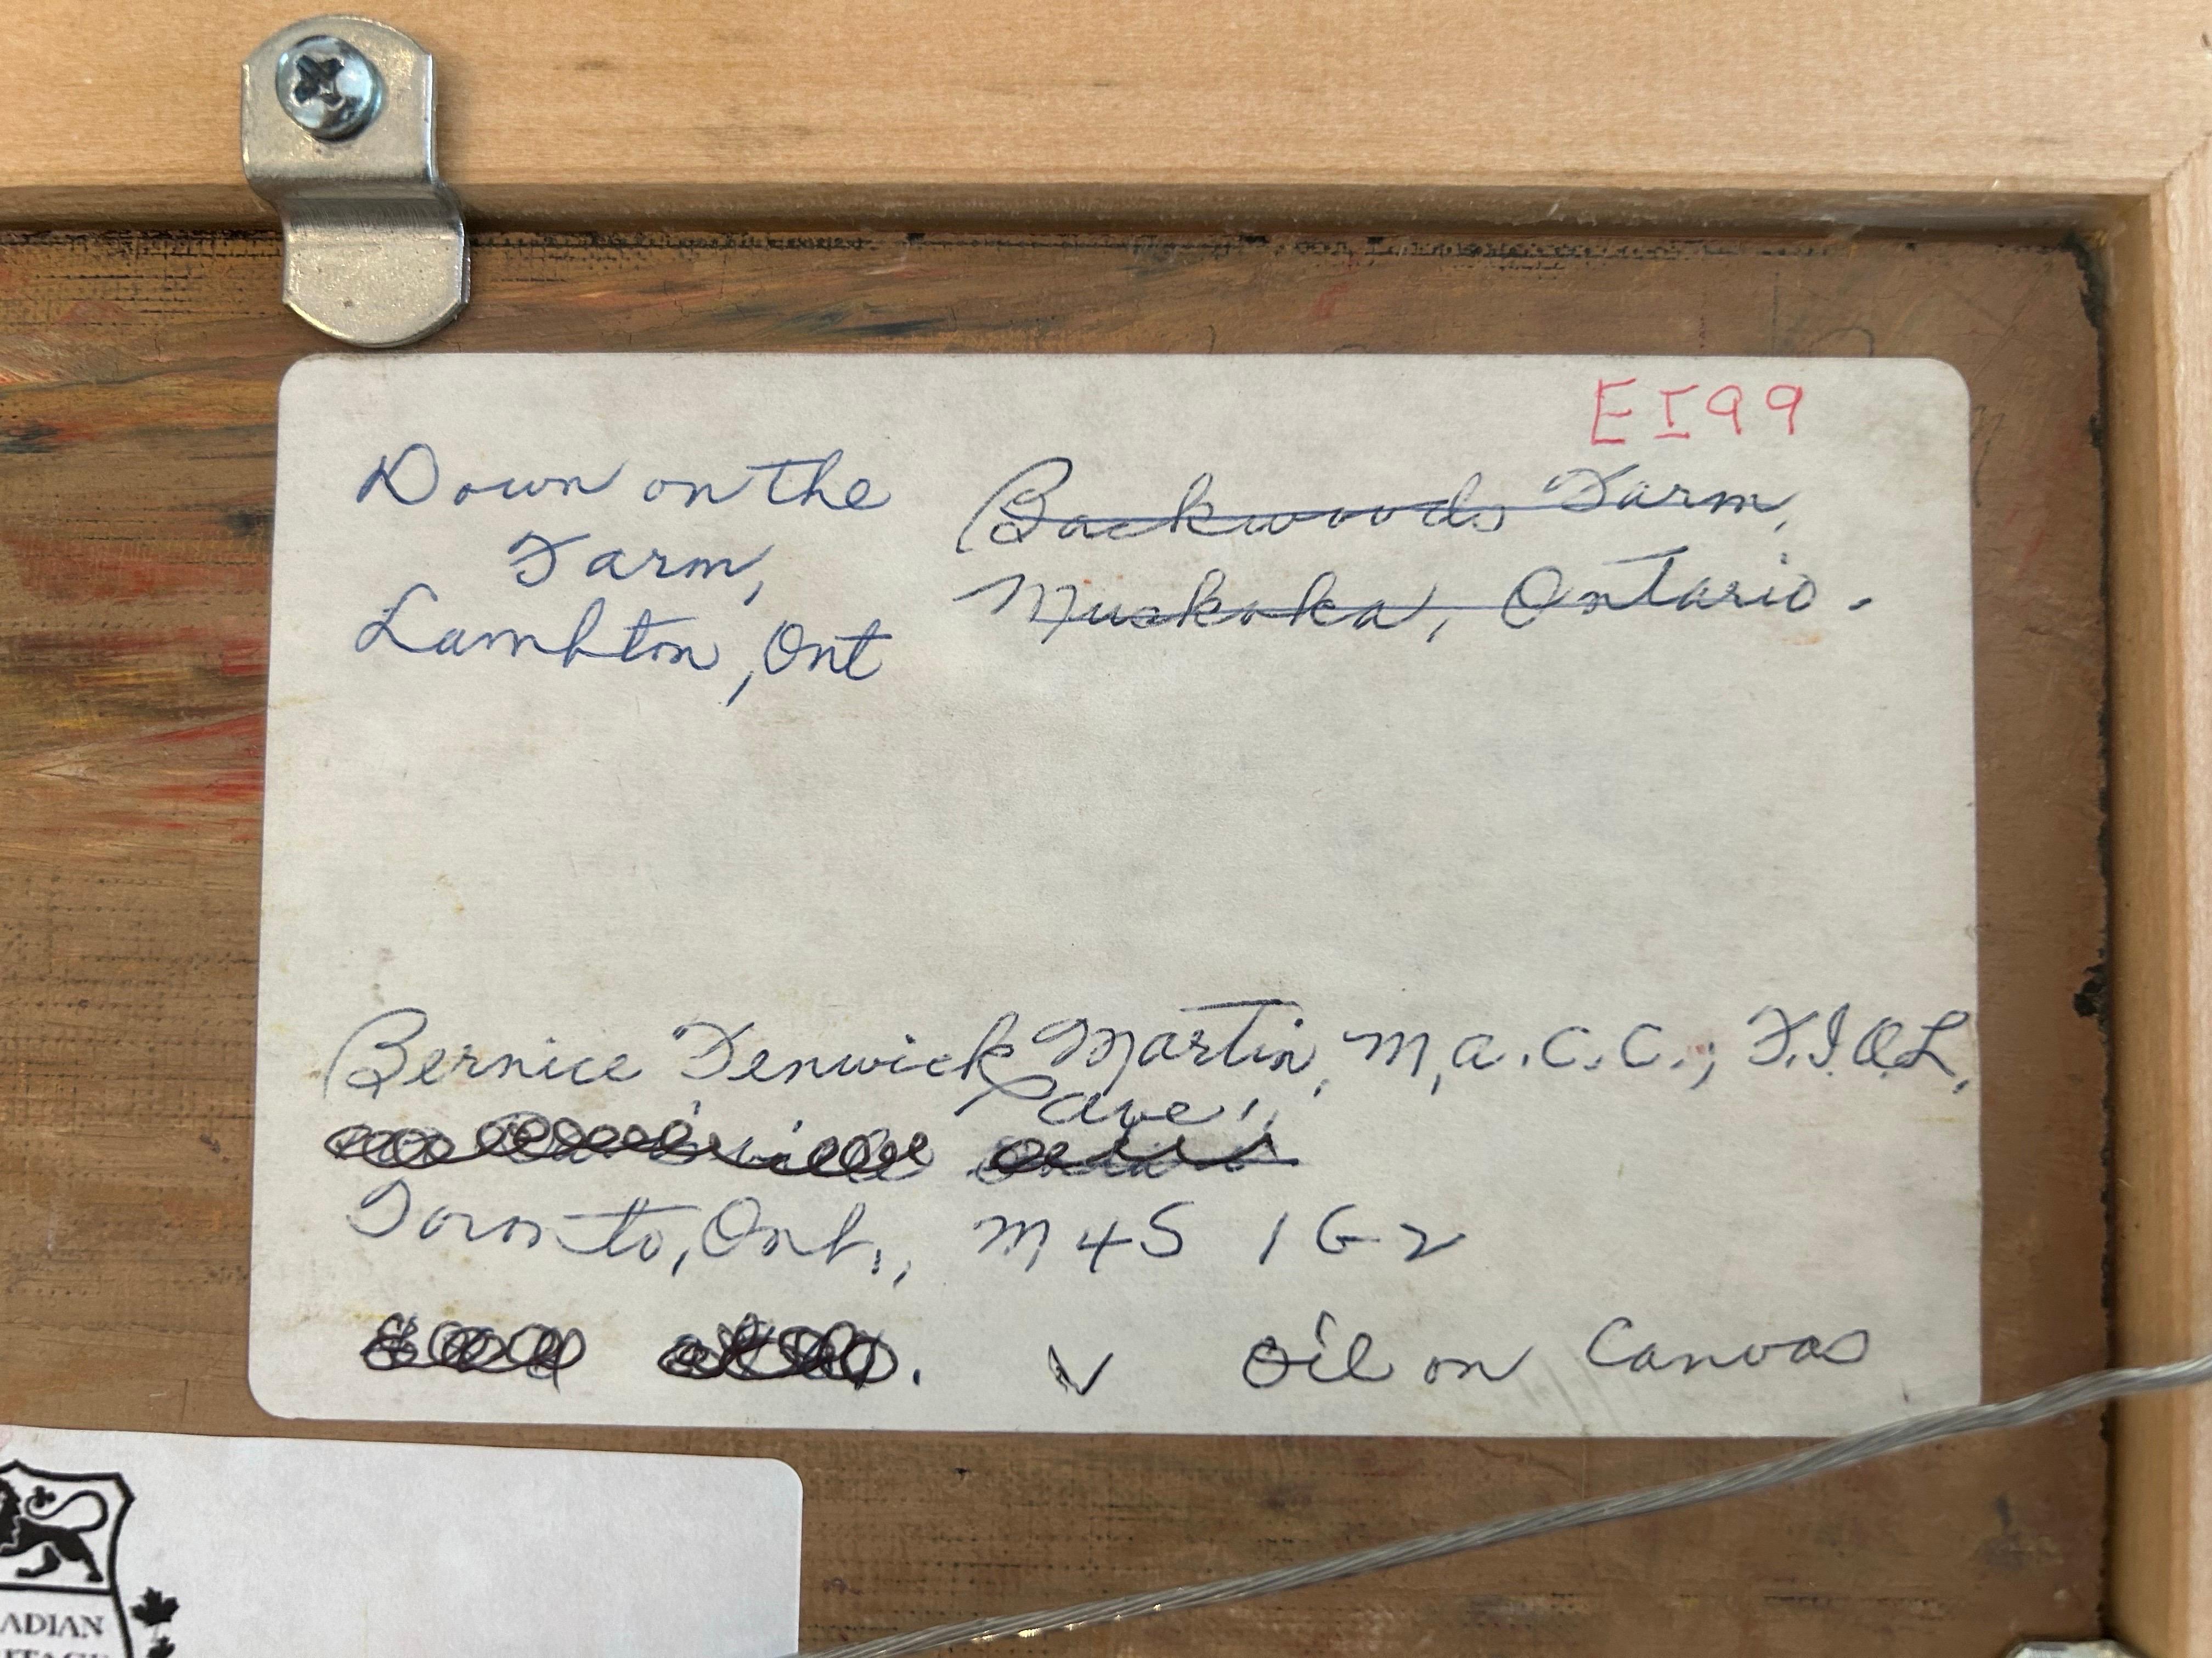 EI99
Down on the
Farm,
Lambton, Ont
Backwoods Farm,
Muskoka, Ontario.
Bernice Fenwick Martin, M.A.C.C.; F.I.A.L.
Ave.,
Toronto, Ont., M4S 1G2
Oil on Canvas
ADIAN